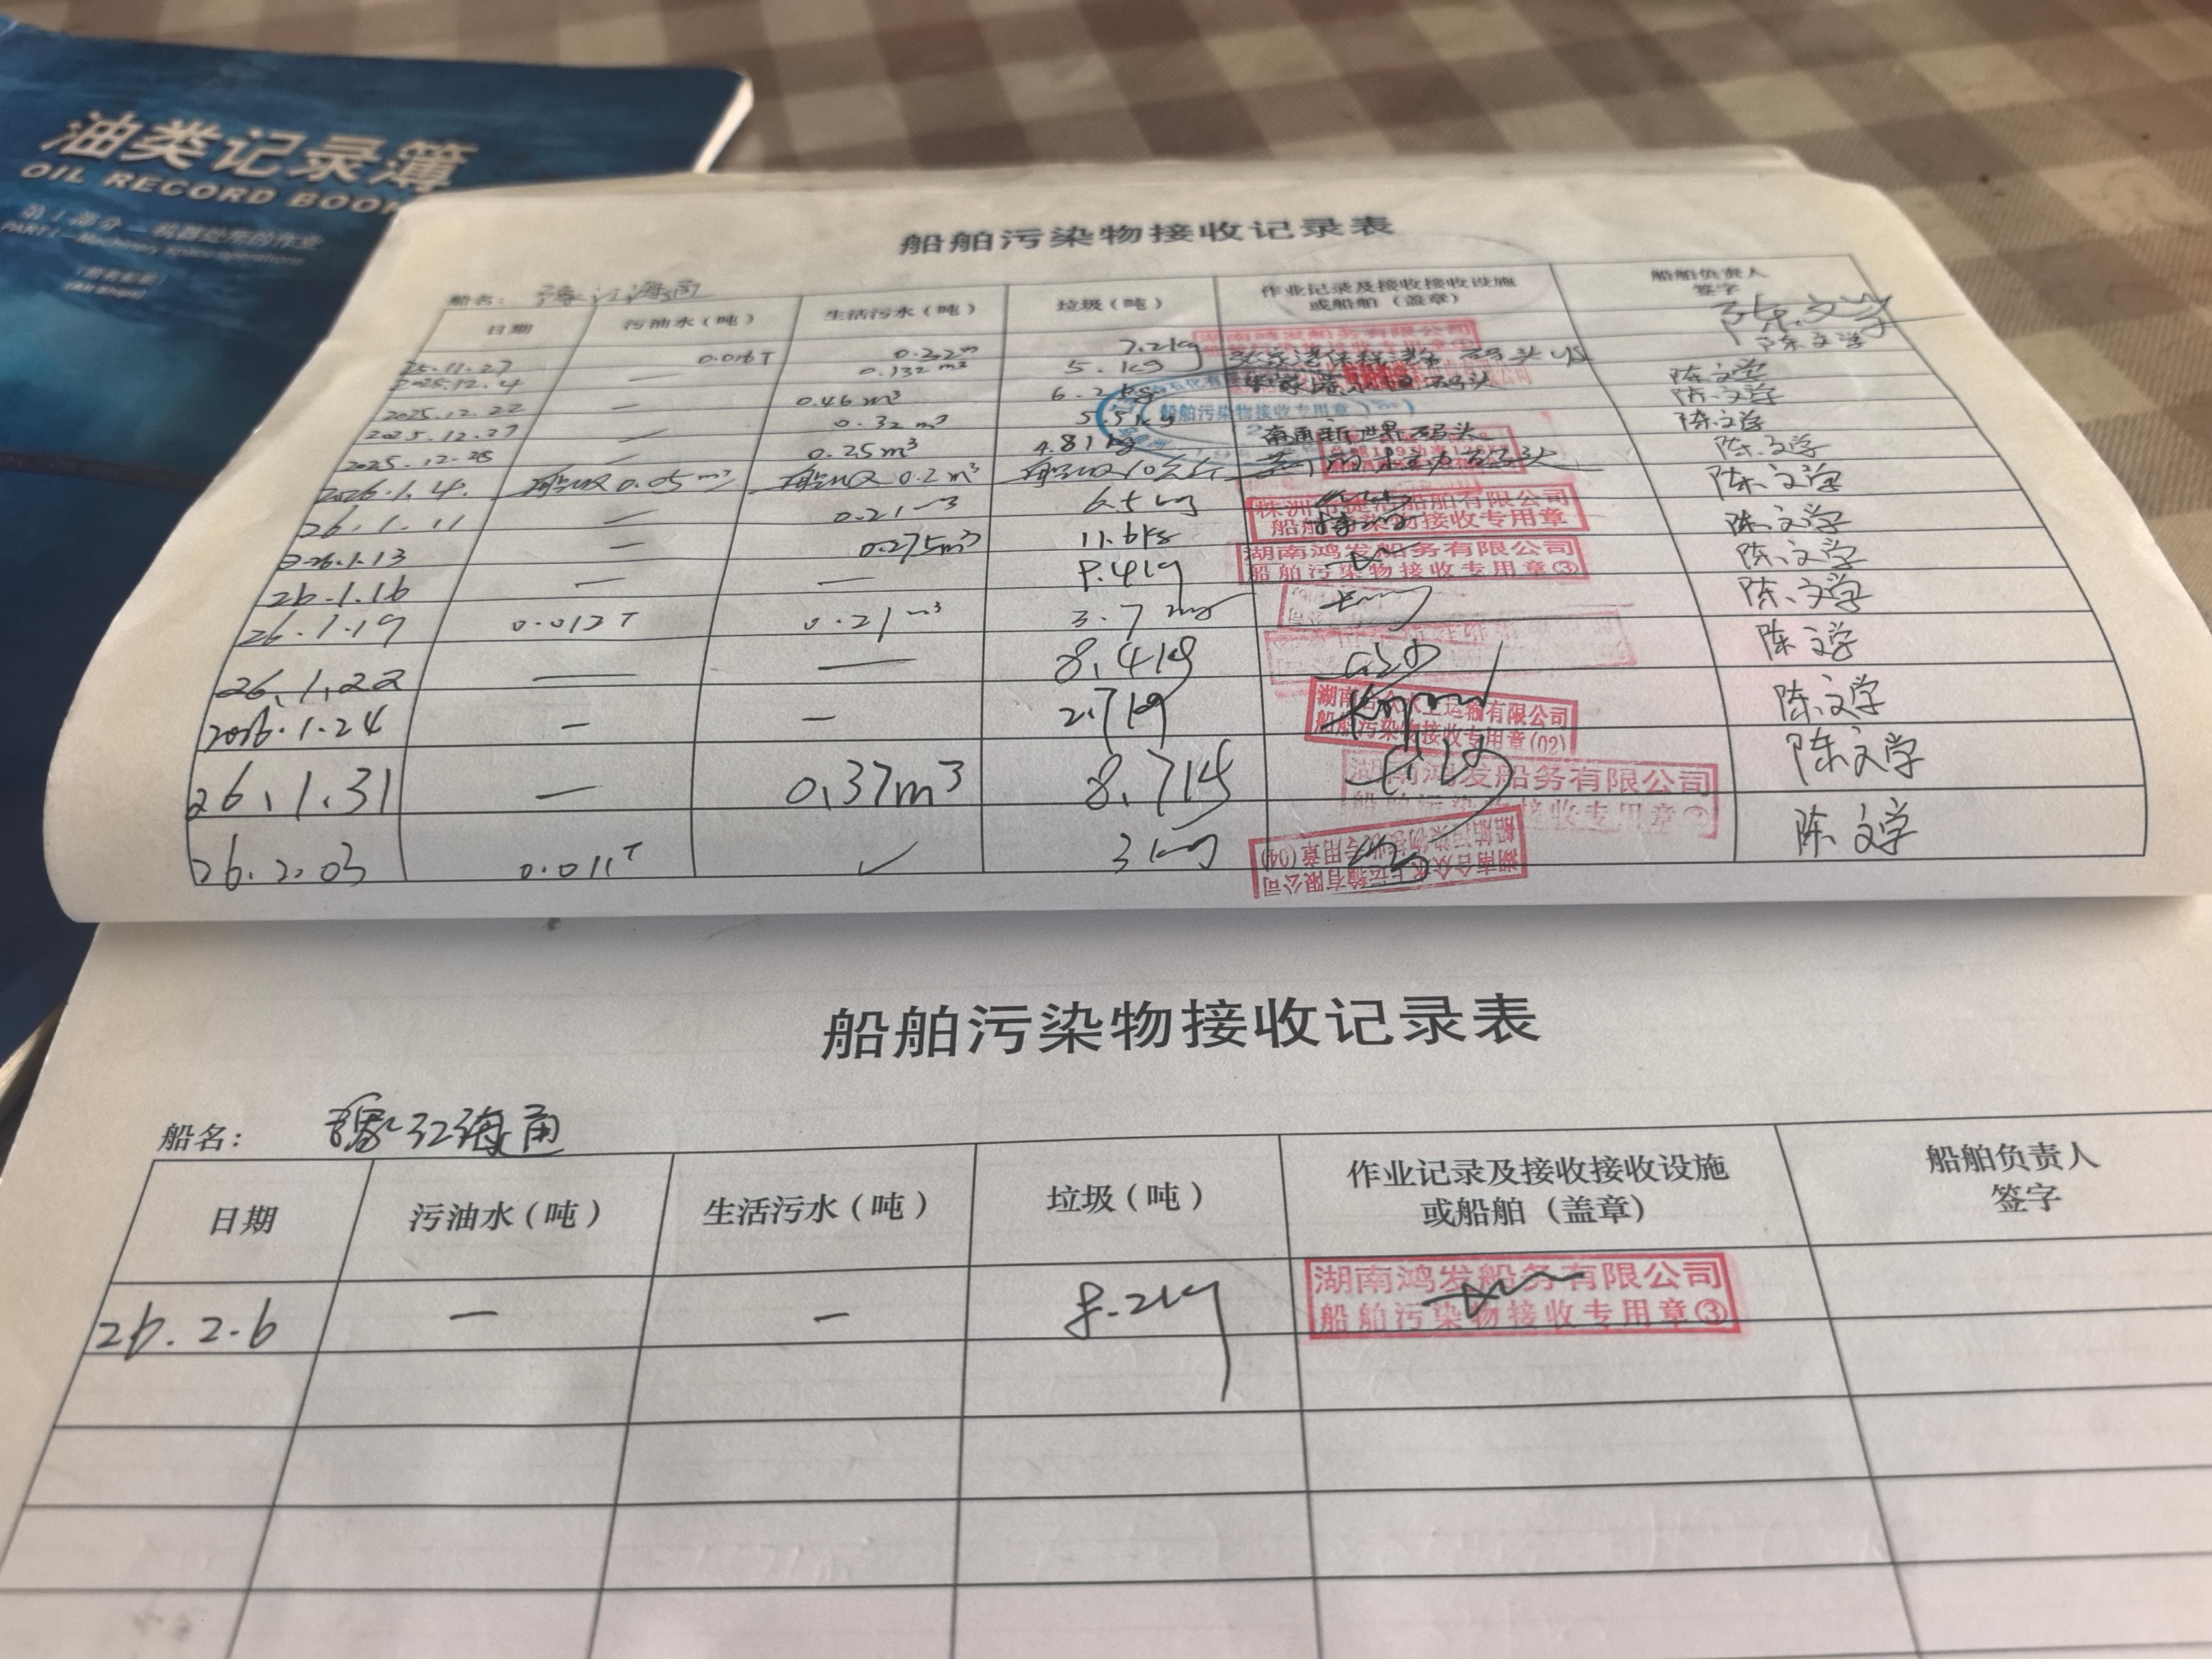 油类记录簿
OIL RECORD BOOK
第Ⅰ部分—机器处所的作业
PART I—Machinery space operations
(All Ships)
船舶污染物接收记录表
船名: 豫江海甬
日期 污油水（吨） 生活污水（吨） 垃圾（吨） 作业记录及接收接收设施或船舶（盖章） 船舶负责人签字
陈文学
25.11.27 0.016T 7.2kg 陈文学
2025.12.4 — 0.132m³ 5.1kg 码头 陈文学
2025.12.22 — 0.46m³ 6.2kg 码头 陈文学
船舶污染物接收专用章
2025.12.27 — 0.32m³ 5.5kg 陈文学
2025.12.28 — 0.25m³ 4.81kg 新世界码头 陈文学
2026.1.4. 0.05m³ 0.2m³ 10公斤 码头 陈文学
26.1.11 — 0.21m³ 6.5kg 船舶有限公司 船舶污染物接收专用章 陈文学
26.1.13 — 0.275m³ 11.6kg 湖南鸿发船务有限公司 船舶污染物接收专用章③ 陈文学
26.1.16 — — 8.4kg 陈文学
26.1.19 0.012T 0.21m³ 3.7 陈文学
26.1.22 — — 8.4kg 陈文学
2026.1.24 — — 2.7kg 湖南合众水上运输有限公司 船舶污染物接收专用章(02) 陈文学
26.1.31 — 0.37m³ 8.7kg 湖南鸿发船务有限公司 陈文学
26.2.03 0.011T ✓ 3kg 湖南合众水上运输有限公司 船舶污染物接收专用章(04) 陈文学
船舶污染物接收记录表
船名: 豫江海甬
日期 污油水（吨） 生活污水（吨） 垃圾（吨） 作业记录及接收接收设施或船舶（盖章） 船舶负责人签字
26.2.6 — — 8.2kg 湖南鸿发船务有限公司 船舶污染物接收专用章③